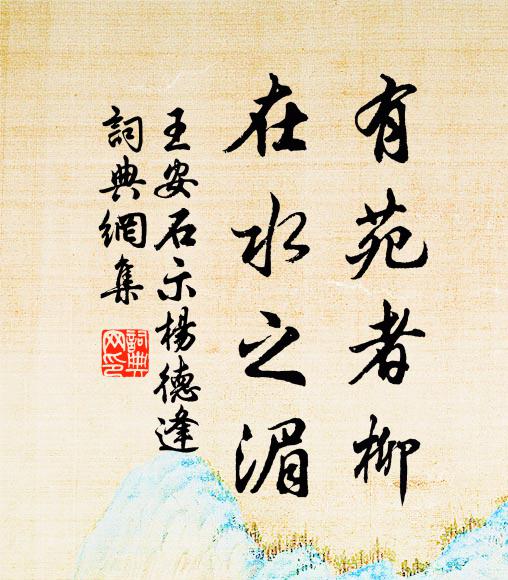 有苑者柳
在水之湄
王安石示楊德逢
詞典網集
詞典
网印